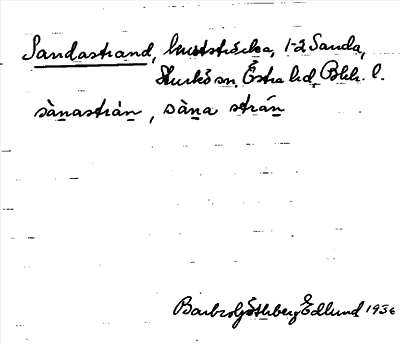 Sandastrand, kuststräcka, 1-2 Sanda,
Sturkö sn, Östra hd, Blek. l.
sànastrán, sàna strán
Barbro Götlberg Edlund 1936